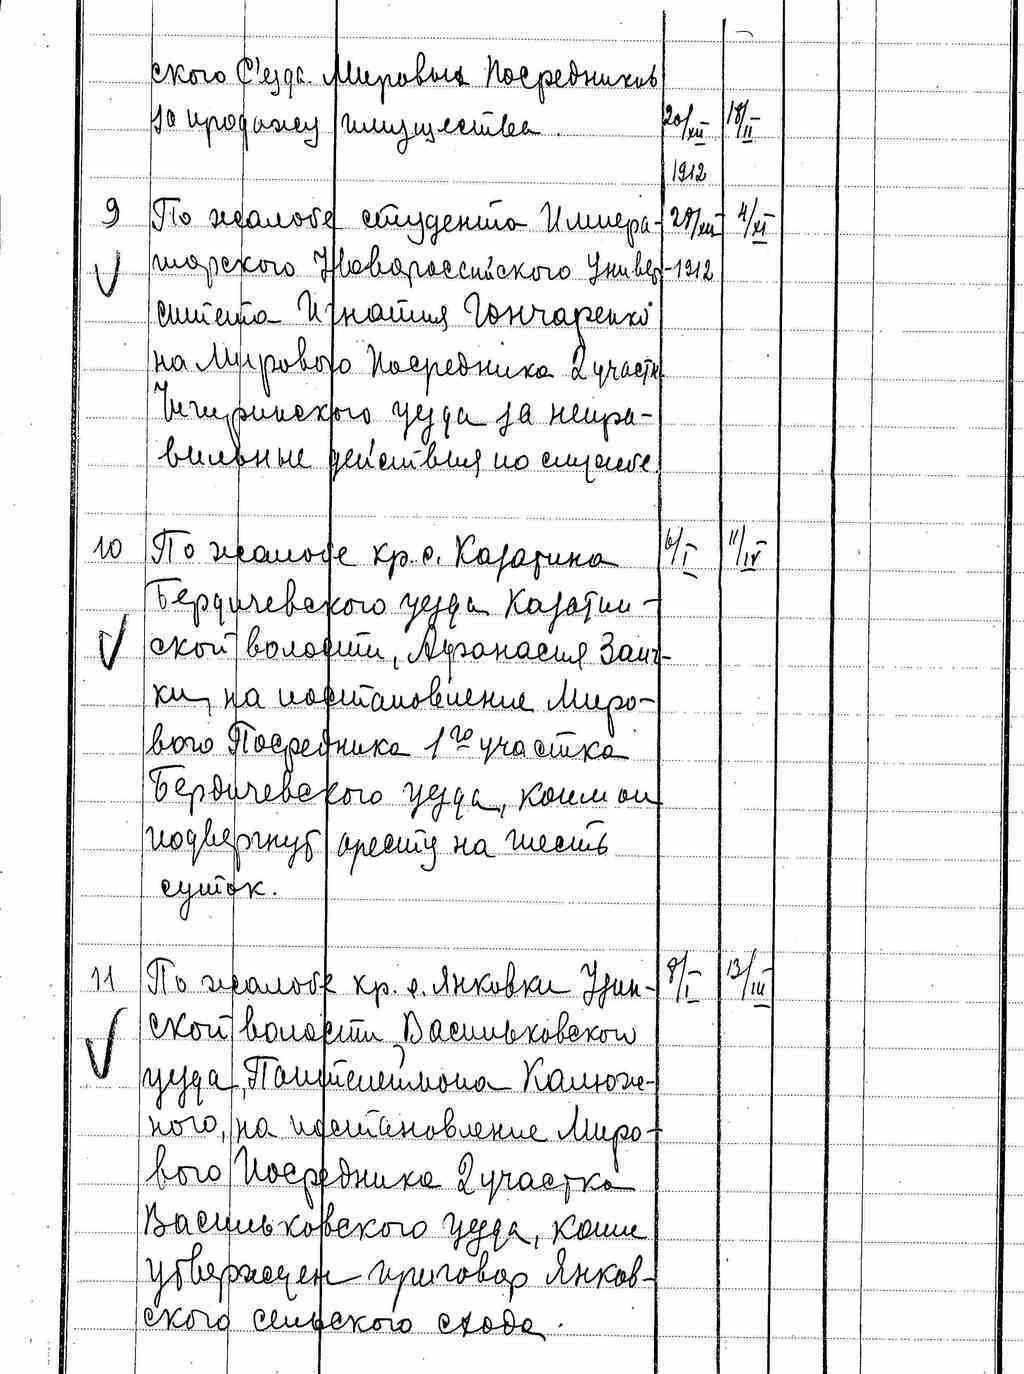 ского С'езда Мировых Посредников
за продажу имущества. 20/XII 18/II
1912
9 По жалобе студента Импера- 28/XII 4/XI
торского Новороссийского Универ- 1912
ситета Игнатия Гончаренко
на Мирового Посредника 2 участк
Чигиринского уезда за непра-
вильные действия по службе.
10 По жалобе кр. с. Казатина 6/I 11/IV
Бердичевского уезда Казатин-
ской волости, Афанасия Заич-
ки, на постановление Миро-
вого Посредника 1го участка
Бердичевского уезда, коим он
подвергнут аресту на шесть
суток.
11 По жалобе кр. с. Янковки Узин- 8/I 13/III
ской волости Васильковского
уезда, Пантелеймона Калюж-
ного, на постановление Миро-
вого Посредника 2 участка
Васильковского уезда, коим
утвержден приговор Янков-
ского сельского схода.